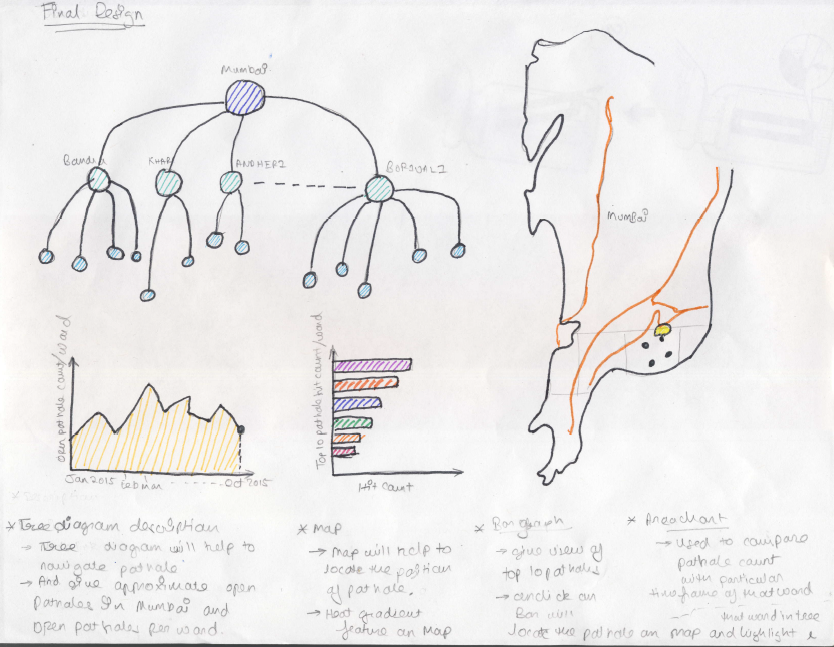 Final Design
Mumbai
Bandra
KHAR
ANDHERI
BORIVALI
Mumbai
Open pathole count/ward
Jan 2015 Feb Mar - - - - - - Oct 2015
Top 10 pathole hit count/ward
Hit Count
* Description
* Tree diagram description
→ Tree diagram will help to
navigate pathole
→ And give approximate open
Patholes in Mumbai and
Open patholes per ward.
* Map
→ Map will help to
locate the position
of pathole.
→ Heat gradient
feature on Map
* Bar graph
→ give view of
top 10 patholes
→ onclick on
Bar will
locate the pathole on map and highlight
that ward in tree
* Areachart
→ Used to compare
pathole count
with particular
timeframe of that ward